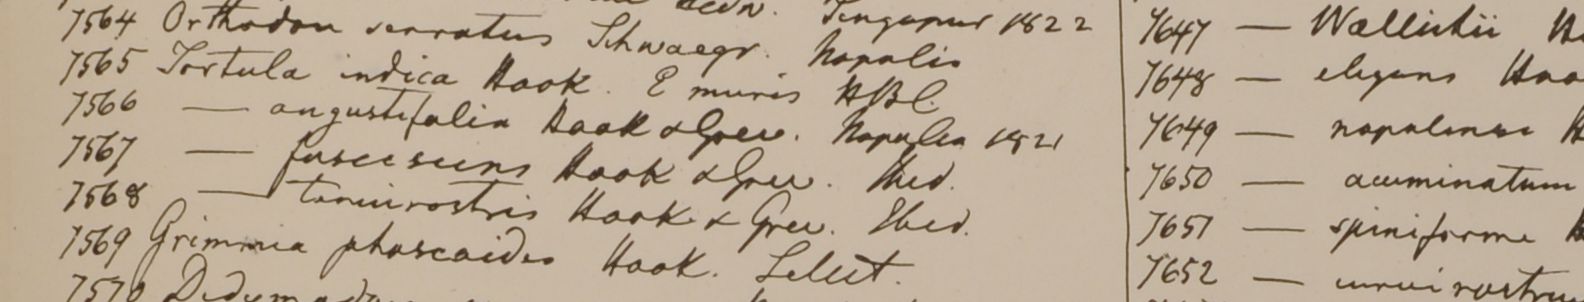 Singapur 1822
7564 Orthodon serratus Schwaegr. Napalia
7565 Tortula indica Hook. E muris HBC.
7566 — angustifolia Hook & Grev. Napalia 1821
7567 — fuscescens Hook & Grev. Ibid.
7568 — tenuirostris Hook & Grev. Ibid.
7569 Grimmia phascoides Hook. Silhet.
7570
7647 — Wallichii
7648 — elegans Hoo
7649 — napalense H
7650 — acuminatum
7651 — spiniforme
7652 — curvirostrum